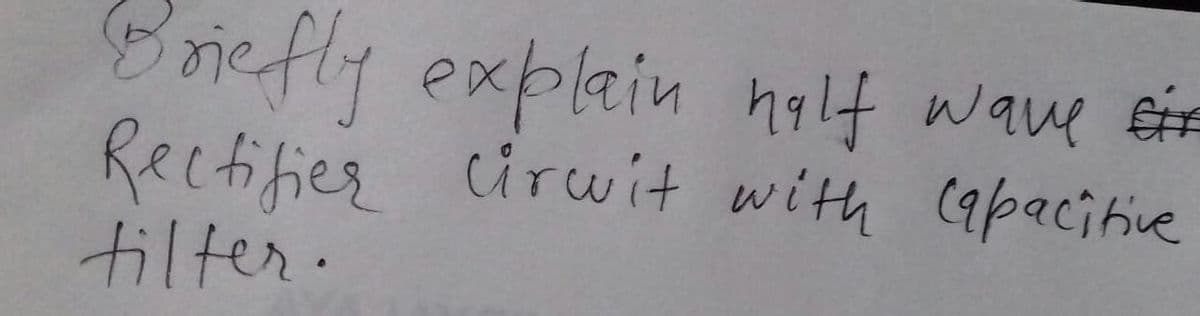 Briefly explain half wave
Rectifier circuit with capacitive
filter.